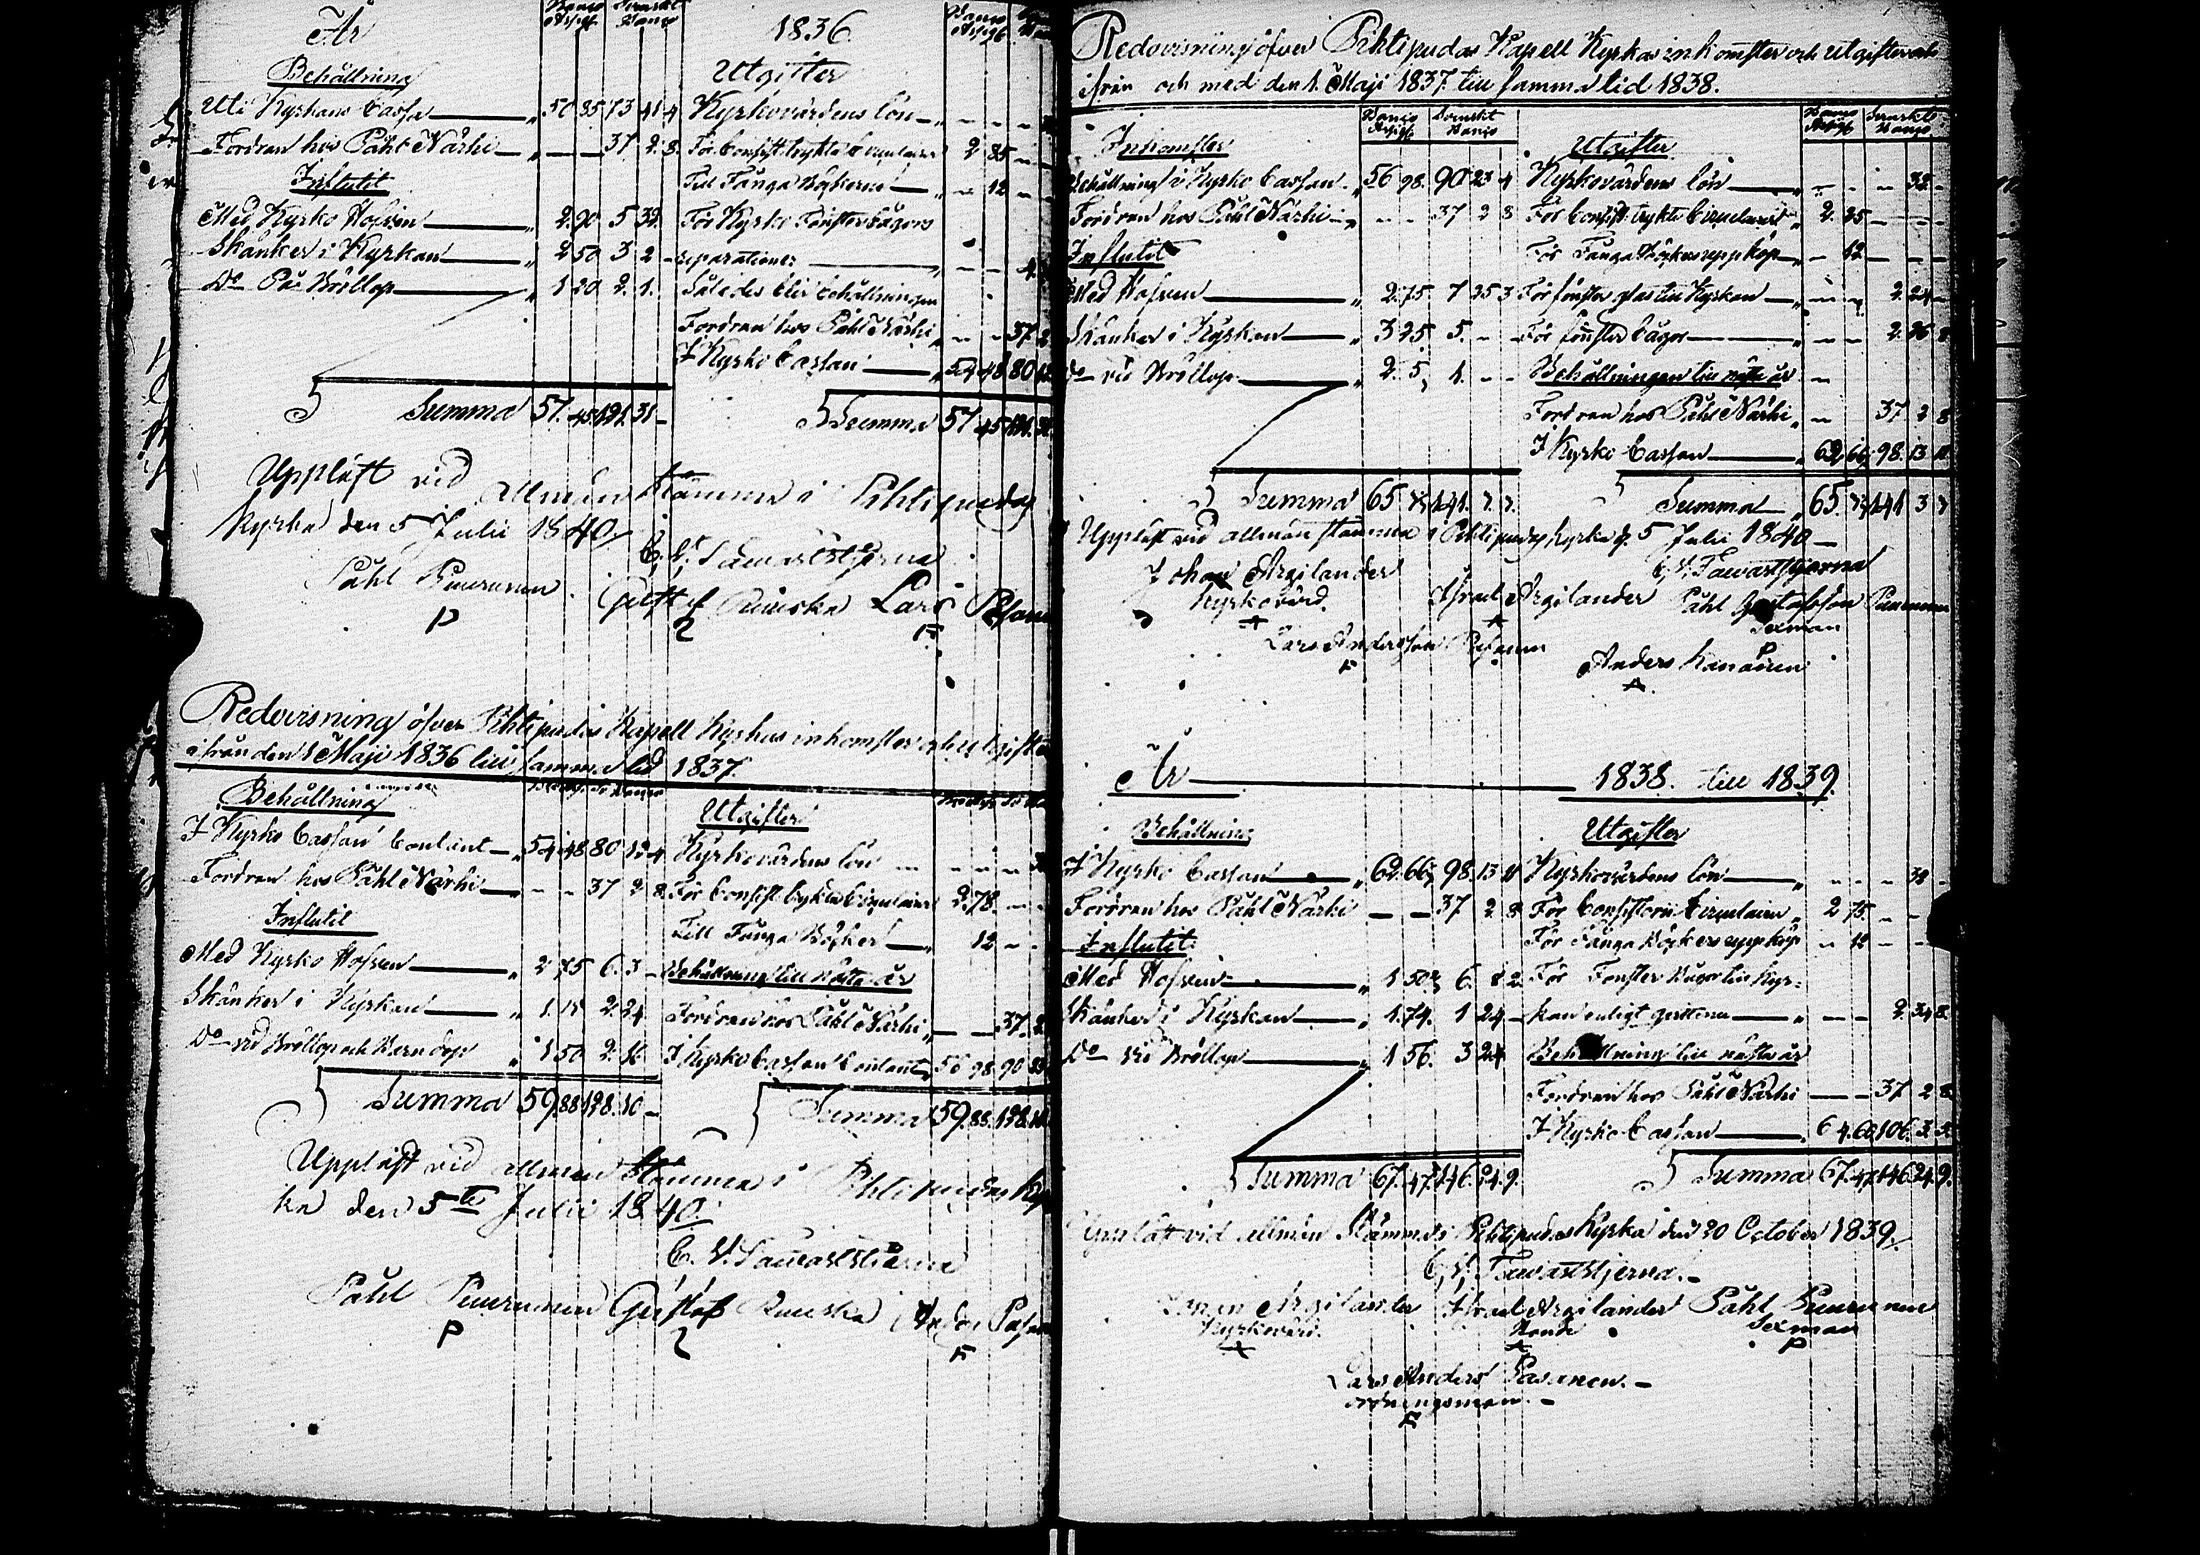 År 1836
Banco Assign. Svenskt Banco
Behållning
Uti Kyrkans Cassa — 50 35 73 41 4
Fordran hos Påhl Närhi — 37 2 8
Influtit
Med Kyrko Hofven — 2 90 5 32
Skänker i Kyrkan — 2 50 3 2
Do På Bröllop — 1 20 2 1
Summa 57. 45 121. 31 —
Utgifter
Kyrkovärdens lön —
För Consist. tryckta Circulairer 2 85
Till Fånga Böckerne — 12
För Kyrko Fönster bågors
reparationer —
Således blir behållningen
Fordran hos Påhl Närhi — 37 2
I Kyrko Cassan — 54 48 80 12
Summa 57 45 121. 31
Uppläst vid allmän Stämma i Pihtipudas
Kyrka den 5 Julii 1840
C. V. Tawaststjerna
Påhl Puurunen Gustaf Ruuska Lars Pasane
P
Redovisning öfver Pihtipudas Kapell Kyrkas inkomster och utgifter
ifrån den 1 Maji 1836 till samma tid 1837.
Behållning
I Kyrko Cassan Contant — 54 48 80 12 4
Fordran hos Påhl Närhi — 37 2 8
Influtit
Med Kyrko Hofven — 2 75 6 3 —
Skänker i Kyrkan — 1. 15 2. 24
Do vid Bröllop och Barndop 1 50 2. 16
Summa 59. 88 128. 10 —
Utgifter
Kyrkovärdens lön —
För Consist. tryckta Circulairer 2. 78.
Till Fånga Böcker — 12
Behållning till nästa år
Fordran hos Påhl Närhi — 37. 2
I Kyrko Cassan Contant 56 98 90 23
Summa 59. 88. 128. 10
Uppläst vid allmen Stämma i Pihtipudas Kyr
ka den 5te Julii 1840.
C. V. Tawaststjerna
Påhl Puurunen Gustaf Ruuska
P
Redovisning öfver Pihtipudas Kapell Kyrkas inkomster och Utgifter
ifrån och med den 1. Maji 1837 till samma tid 1838.
Banco Assign. Svenskt Banco
Inkomster
Behållning i Kyrko Cassan — 56 98. 90 23 4
Fordran hos Påhl Närhi — 37 2 8
Influtit
Med Hofven — 2. 75 7 25 3
Skänker i Kyrkan — 3 25 5. — —
Do vid Bröllop — 2. 5 1. — —
Summa 65 141. 7. 7.
Utgifter
Kyrkovärdens lön — 32 —
För Consist. tryckta Circulairer 2. 25
För Fånga Böckers uppköp — 12
För fönster glas till Kyrkan — 2. 24
För fönster bågor — 2. 26 8
Behållningen till nästa år
Fordran hos Påhl Närhi — 37 2 8
I Kyrko Cassan — 62 66 98. 13 11
Summa 65. 141 3 7
Uppläst vid allmän stämma i Pihtipudas Kyrka d. 5 Julii 1840 —
C. V. Tawaststjerna
Johan Argilander
Kyrkovärd.
Israel Argilander Påhl Gustafsson Puurunen
Sexman
Lars Andersson Pasanen
Anders Kananen
År — 1838. till 1839.
Behållning
I Kyrko Cassan — 62. 66 98. 13 11
Fordran hos Påhl Närhi — 37 2 8
Influtit
Med Hofven — 1 50 6. 8 2
Skänker i Kyrkan — 1. 74. 1 24 —
Do vid Bröllop — 1 56. 3 24
Summa 67. 47 146. 24. 9.
Utgifter
Kyrkovärdens lön — 32 —
För Consistorii Circulairer 2 75
För Fånga Böckers uppköp — 12
För Fönster Bågor till Kyr-
kan enligt — 2. 34 8
Behållning till nästa år
Fordran hos Påhl Närhi — 37 2 8
I Kyrko Cassan — 64. 60 106.
Summa 67. 47 146 24 9.
Uppläst vid allmän Stämma i Pihtipudas Kyrka den 20 October 1839.
C. V. Tawaststjerna. —
Johan Argilander Israel Argilander Påhl Puurunen
Kyrkovärd. Sexman
P
Lars Anders Pasanen. —
ordningsman. —